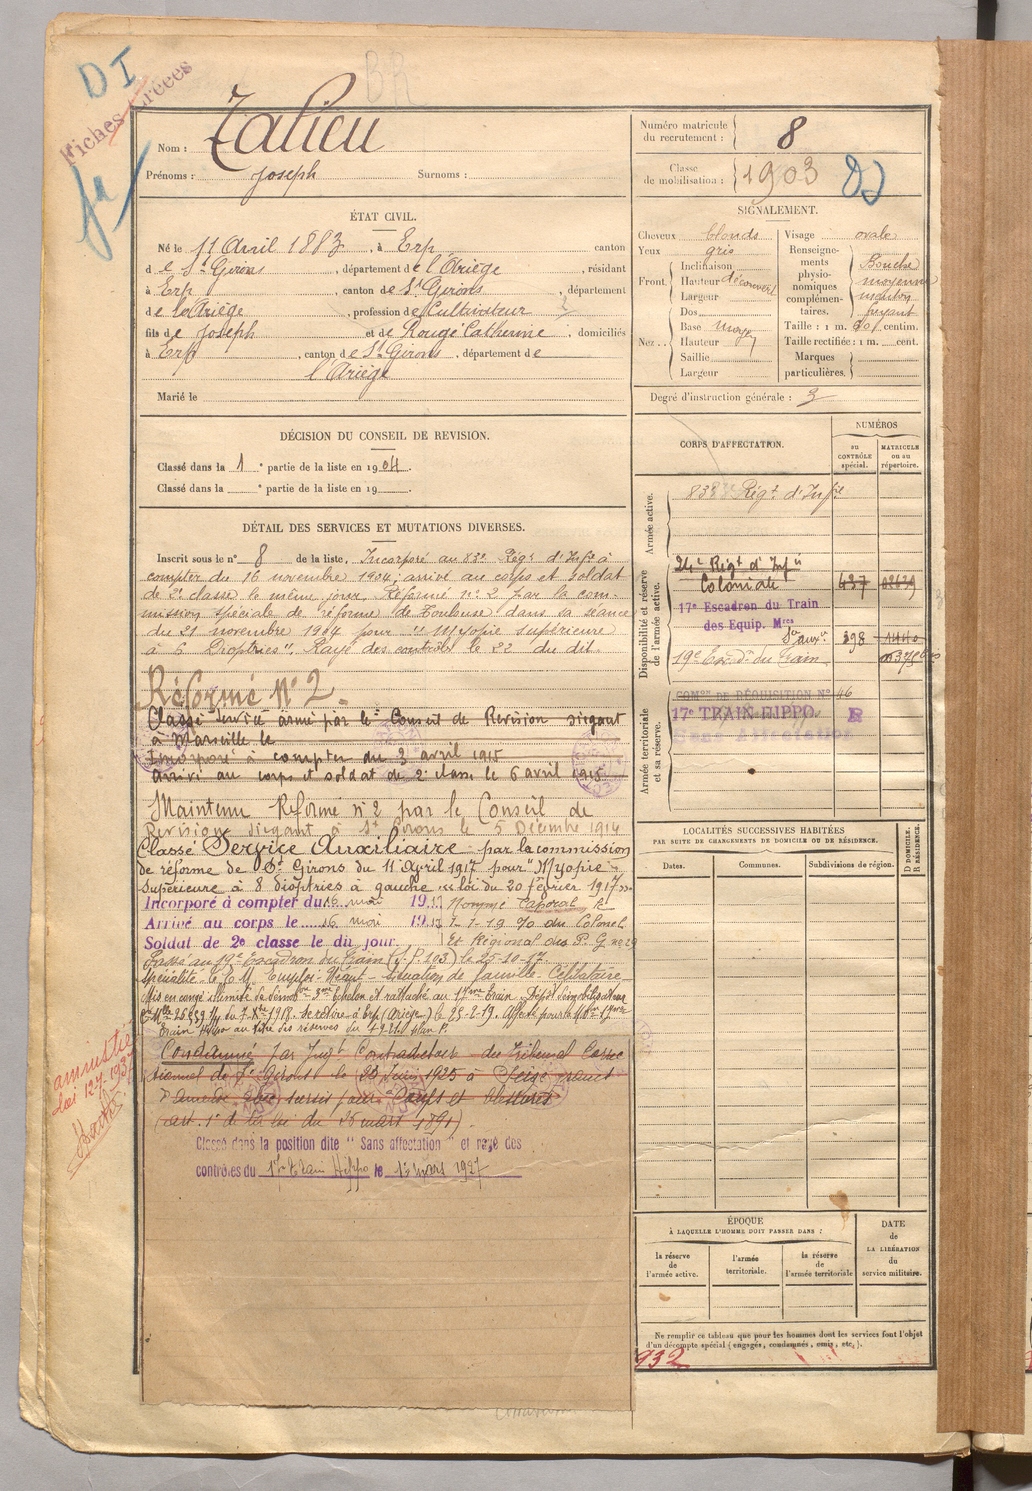 DI
Fiches
Nom : Talieu
Prénoms : Joseph Surnoms :
Numéro matricule du recrutement : 8
Classe de mobilisation : 1903
ÉTAT CIVIL.
Né le 11 Avril 1883, à Erp canton
de St Girons, département de l'Ariège, résidant
à Erp, canton de St Girons, département
de l'Ariège, profession de Cultivateur
fils de Joseph et de Rougé Catherine, domiciliés
à Erp, canton de St Girons, département de
l'Ariège
Marié le
SIGNALEMENT.
Cheveux blonds
Yeux gris
Front. Inclinaison
Hauteur découvert
Largeur
Nez.. Dos
Base moyen
Hauteur
Saillie
Largeur
Visage ovale
Renseignements physionomiques complémentaires. Bouche
moyenne
menton
Taille : 1 m. centim.
Taille rectifiée : 1 m. cent.
Marques particulières.
Degré d'instruction générale : 3
DÉCISION DU CONSEIL DE REVISION.
Classé dans la 1e partie de la liste en 1904.
Classé dans la e partie de la liste en 19
DÉTAIL DES SERVICES ET MUTATIONS DIVERSES.
Inscrit sous le n° 8 de la liste. Incorporé au 83e Régt d'Infie à
compter du 16 novembre 1904, arrivé au corps et soldat
de 2e classe le même jour. Réformé n° 2 par la com-
mission spéciale de réforme de Toulouse dans sa séance
du 21 novembre 1904 pour "Myopie supérieure
à 6 Dioptries". Rayé des contrôles le 22 du dit.
Réformé N° 2
Classé Service armé par le Conseil de Revision siégeant
à Marseille le
Incorporé à compter du 3 avril 1915
Arrivé au corps et soldat de 2e classe le 6 avril 1915
Maintenu Réformé n° 2 par le Conseil de
Revision siégeant à St Girons le 5 Décembre 1914
Classé Service Auxiliaire par la commission
de réforme de St Girons du 11 Avril 1917 pour "Myopie
supérieure à 8 dioptries à gauche" loi du 20 février 1917
Incorporé à compter du 16 mai 1917 Nommé Caporal le
Arrivé au corps le 16 mai 1917 1-1-19 du Colonel
Soldat de 2e classe le dit jour. Et Régional des P. G.
Passé au 19e Escadron du Train le 25-10-17.
Emploi Néant - situation de famille Célibataire
Mis en congé illimité de démob 3me Echelon et rattaché au 17me Train.
Se retire à Erp (Ariège) le 25-2-19.
Train au titre des réserves
Condamné par Jugt Contradictoire du Tribunal Correc
tionnel de St Girons le 23 Juin 1925 à Seize francs
d'amende avec sursis pour Coups et blessures
(art. 1er de la loi du 26 mars 1891)
Classé dans la position dite "Sans affectation" et rayé des
contrôles du Train Hippo le 13 mars 1927
amnistié
CORPS D'AFFECTATION.
NUMÉROS
au CONTRÔLE spécial.
MATRICULE ou au répertoire.
Armée active.
83e Régt d'Infie
Disponibilité et réserve de l'armée active.
24e Régt d'Infie
Coloniale 437
17e Escadron du Train
des Equip. Mres
398
19e Escadn du Train
Armée territoriale et sa réserve.
COMon DE RÉQUISITION N° 46
17e TRAIN HIPPO R
Sans Affectation
LOCALITÉS SUCCESSIVES HABITÉES
PAR SUITE DE CHANGEMENTS DE DOMICILE OU DE RÉSIDENCE.
Dates.
Communes.
Subdivisions de région.
D DOMICILE.
R RÉSIDENCE.
ÉPOQUE
À LAQUELLE L'HOMME DOIT PASSER DANS :
la réserve de l'armée active.
l'armée territoriale.
la réserve de l'armée territoriale
DATE de LA LIBÉRATION du service militaire.
Ne remplir ce tableau que pour les hommes dont les services font l'objet
d'un décompte spécial (engagés, condamnés, omis, etc.).
932